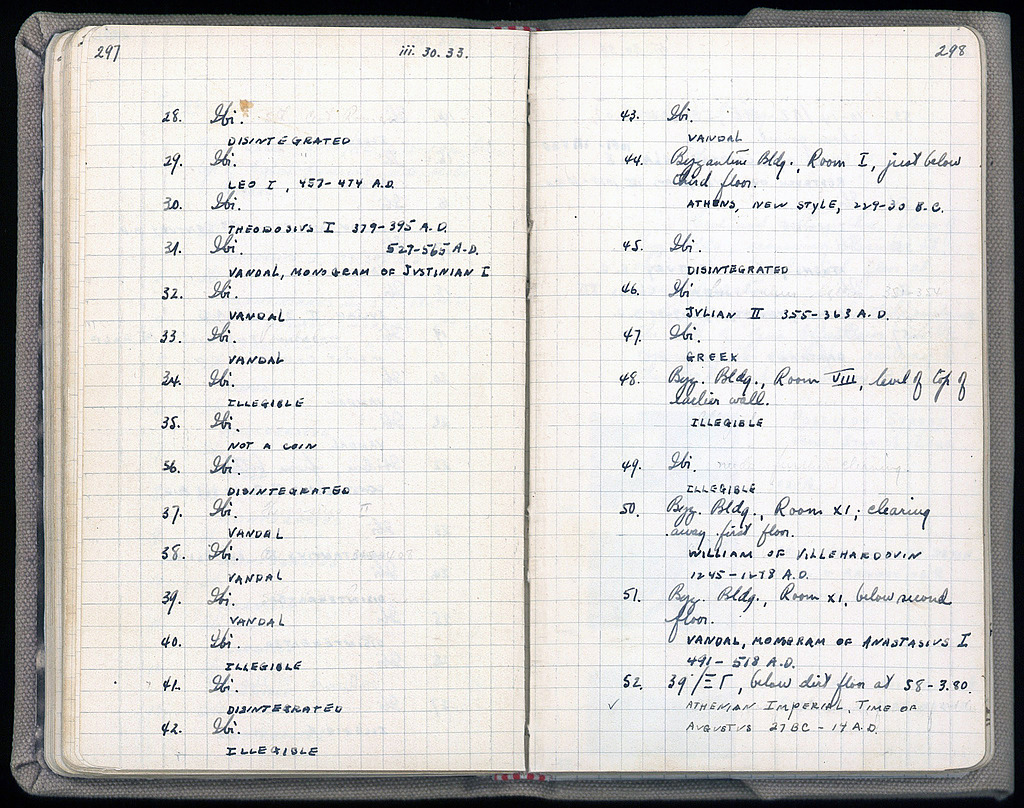 297
iii. 30. 33.
28. Ibi.
DISINTEGRATED
29. Ibi.
LEO I, 457-474 A.D.
30. Ibi.
THEODOSIVS I 379-395 A.D.
31. Ibi. 527-565 A.D.
VANDAL, MONOGRAM OF JVSTINIAN I
32. Ibi.
VANDAL
33. Ibi.
VANDAL
34. Ibi.
ILLEGIBLE
35. Ibi.
NOT A COIN
36. Ibi.
DISINTEGRATED
37. Ibi.
VANDAL
38. Ibi.
VANDAL
39. Ibi.
VANDAL
40. Ibi.
ILLEGIBLE
41. Ibi.
DISINTEGRATED
42. Ibi.
ILLEGIBLE
298
43. Ibi.
VANDAL
44. Byzantine Bldg., Room I, just below
third floor.
ATHENS, NEW STYLE, 229-30 B.C.
45. Ibi.
DISINTEGRATED
46. Ibi
JVLIAN II 355-363 A.D.
47. Ibi.
GREEK
48. Byz. Bldg., Room VIII, level of top of
earlier wall.
ILLEGIBLE
49. Ibi.
ILLEGIBLE
50. Byz. Bldg., Room XI; clearing
away first floor.
WILLIAM OF VILLEHARDOVIN
1245-1278 A.D.
51. Byz. Bldg., Room XI, below second
floor.
VANDAL, MONOGRAM OF ANASTASIVS I
491-518 A.D.
52. 39/ΞΓ, below dirt floor at 58-3.80.
✓ ATHENIAN IMPERIAL, TIME OF
AUGUSTUS 27 BC - 14 A.D.